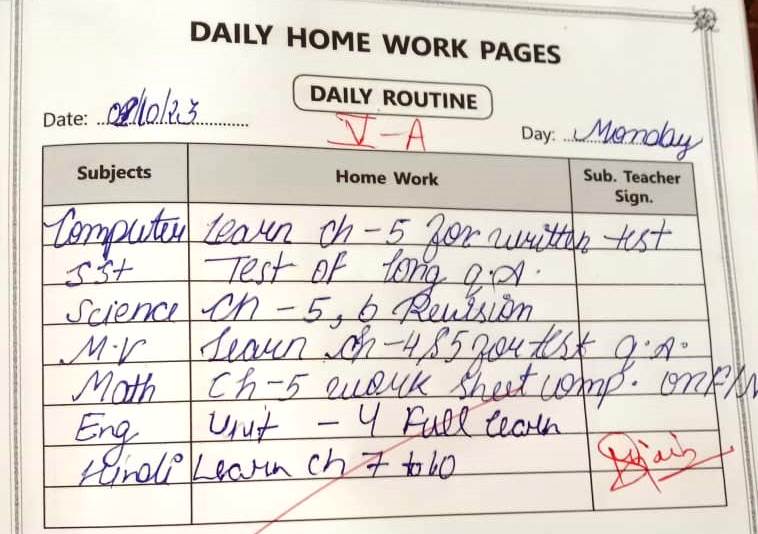 DAILY HOME WORK PAGES
DAILY ROUTINE
Date: /10/23
V-A
Day: Monday
Subjects Home Work Sub. Teacher Sign.
Computer Learn ch-5 for written test
SSt Test of long q.A.
Science Ch-5, 6 Revision
M.V Learn ch-4 & 5 for test q.A.
Math Ch-5 work sheet comp. on F/N
Eng Unit - 4 Full learn
Hindi Learn ch 7 to 10